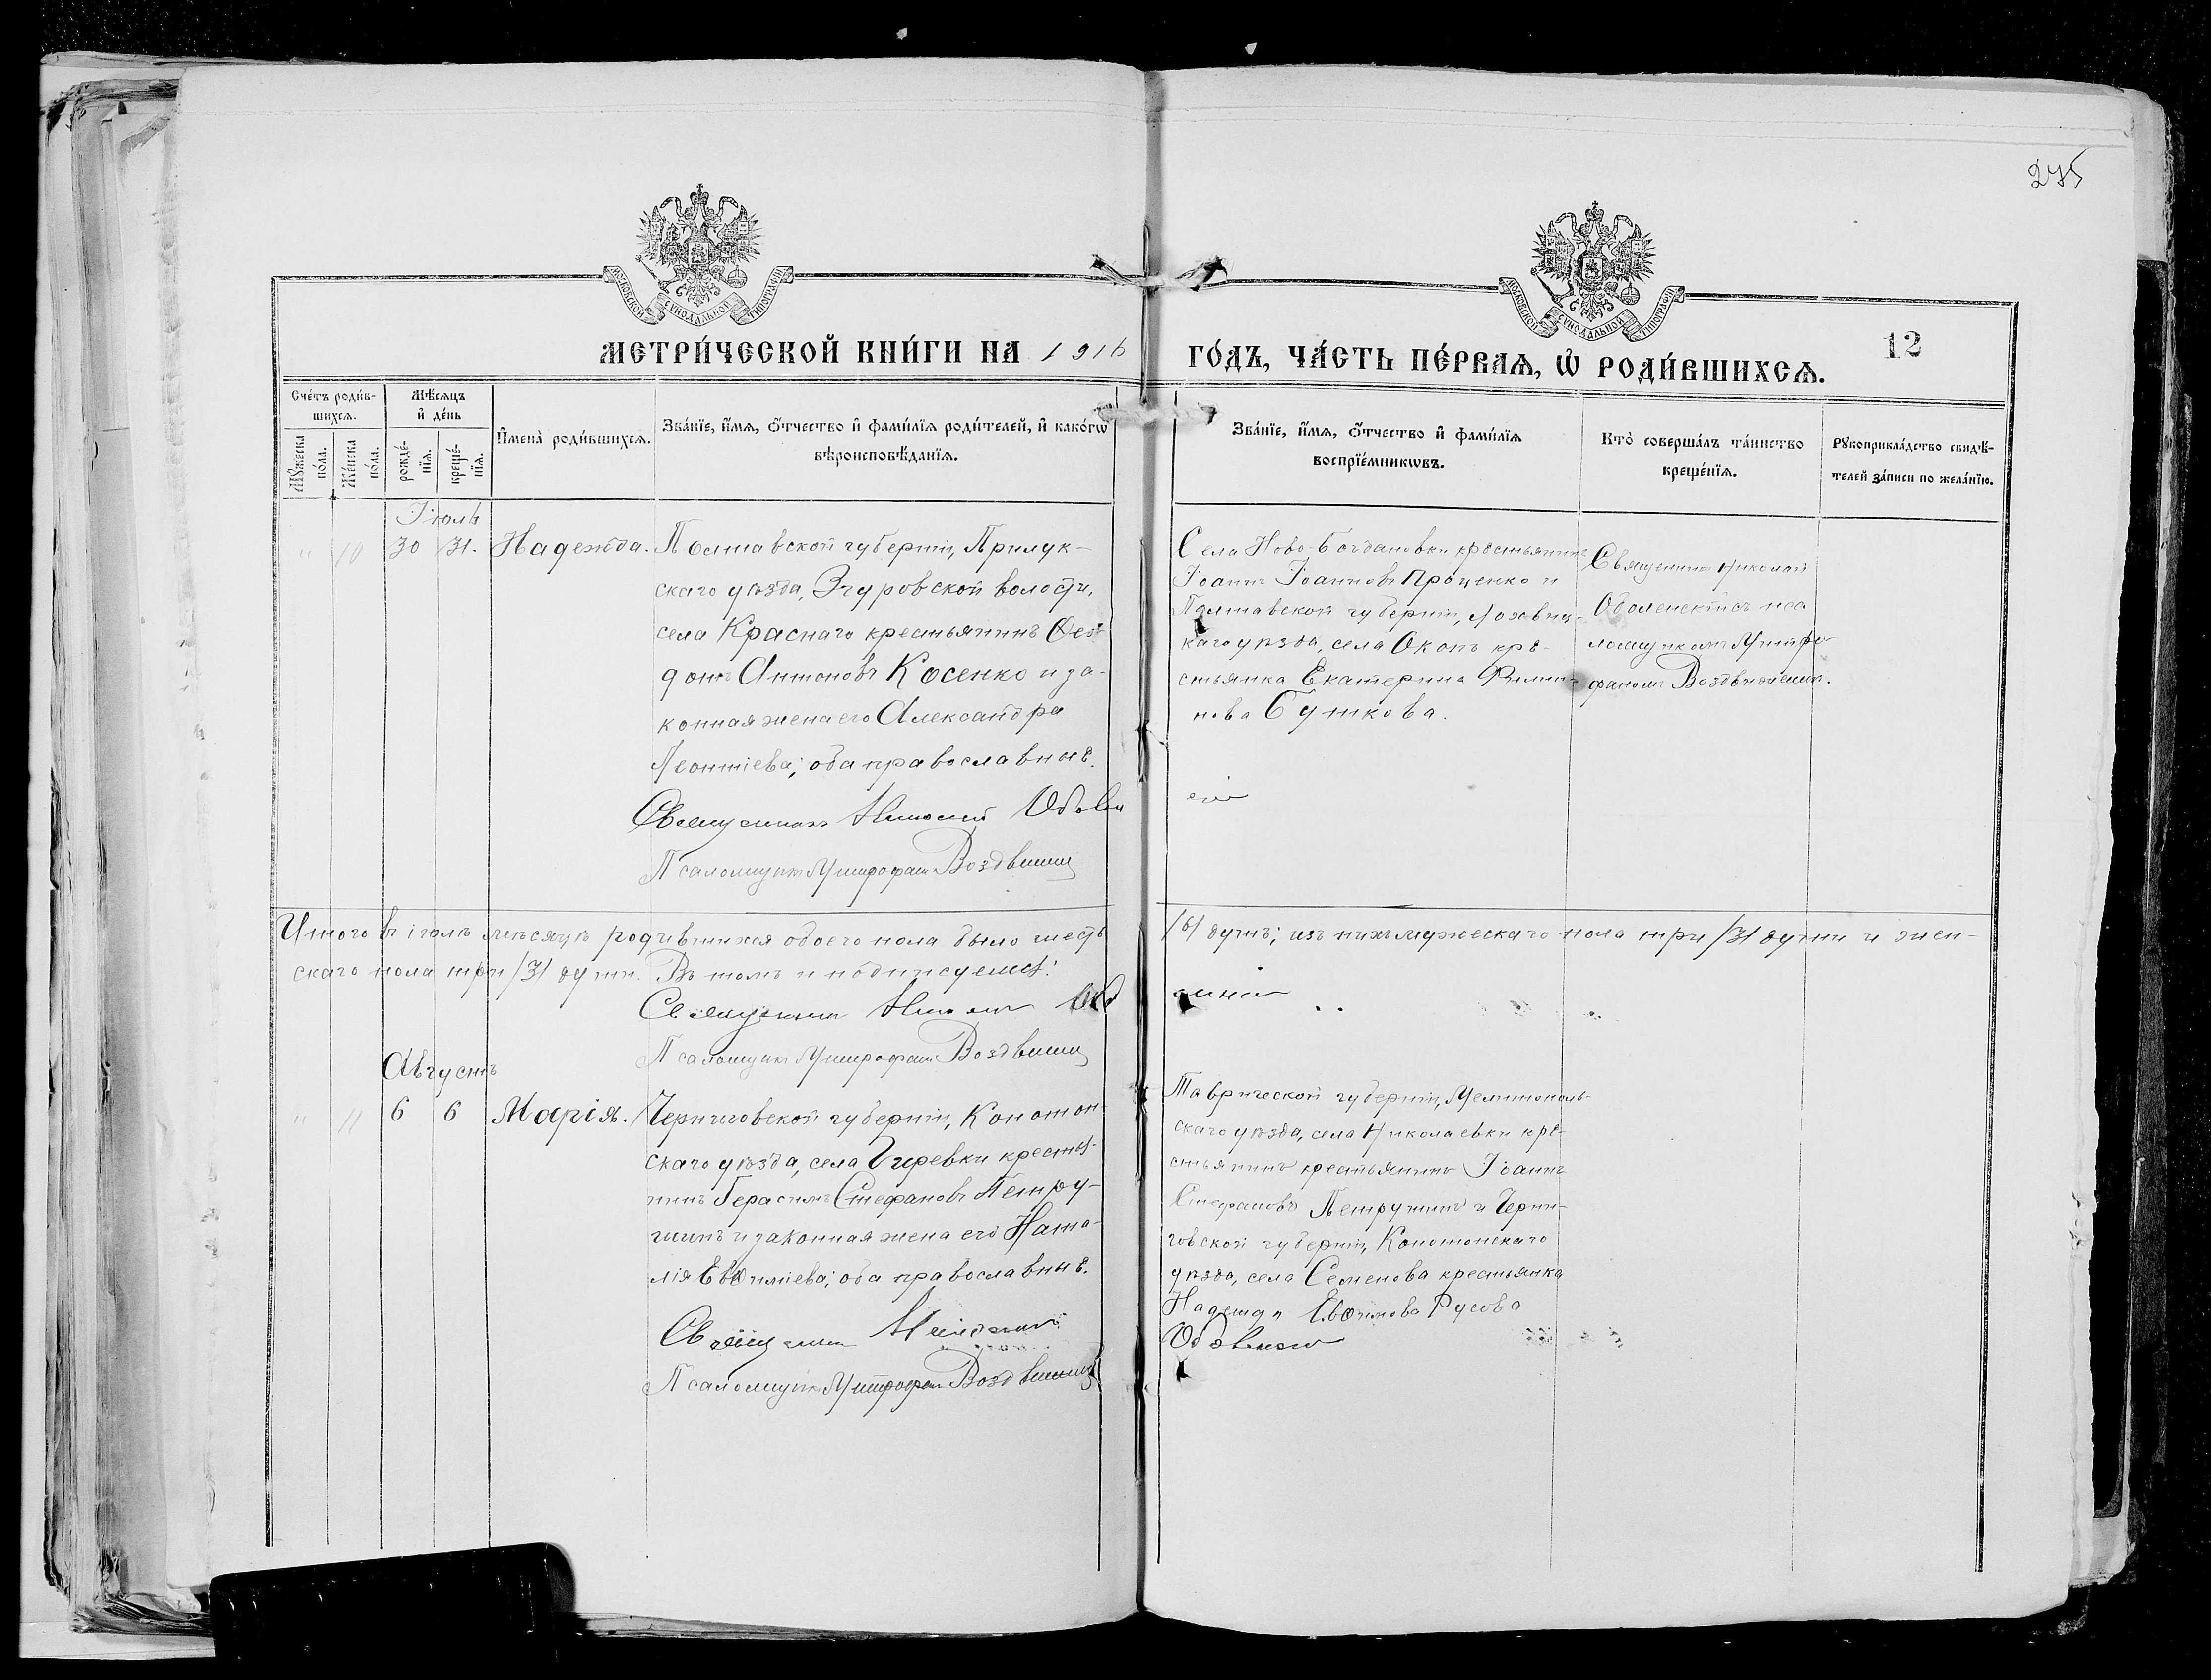 275
МОСКОВСКОЙ СѴНОДАЛЬНОЙ ТИПОГРАФІИ
МОСКОВСКОЙ СѴНОДАЛЬНОЙ ТИПОГРАФІИ
МЕТРИ́ЧЕСКОЙ КНИ́ГИ НА 1916
ГО́ДЪ, ЧА́СТЬ ПЕ́РВАѦ, Ѡ҆ РОДИ́ВШИХСѦ.
12
Сче́тъ роди́в-
шихсѧ.
Мꙋ́жеска по́ла.
Же́нска по́ла.
Мѣ́сѧцъ
и҆ де́нь
рожде́-
нїѧ.
креще́-
нїѧ.
И҆мена̀ роди́вшихсѧ.
Зва́нїе, и҆́мѧ, ѻ҆́тчество и҆ фами́лїѧ роди́телей, и҆ како́гѡ
вѣроисповѣ́данїѧ.
Зва́нїе, и҆́мѧ, ѻ҆́тчество и҆ фами́лїѧ
воспрїе́мникѡвъ.
Кто̀ соверша́лъ та́инство
креще́нїѧ.
Рꙋкоприкла́дство свидѣ́-
телей за́писи по жела́нїю.
Іюль
" 10 30 31. Надежда.
Полтавской губерніи, Прилук-
скаго уѣзда, Згуровской волости,
села Краснаго крестьянинъ Ѳео-
донъ Антоновъ Косенко и за-
конная жена его Александра
Леонтіева; оба православные.
Священникъ Николай Оболен
Псаломщикъ Митрофанъ Воздвиж
Села Ново-Богдановки крестьянинъ
Іоаннъ Іоанновъ Проценко и
Полтавской губерніи, Лохвиц-
каго уѣзда, села Окопъ кре-
стьянка Екатерина Филип-
пова Буткова.
Священникъ Николай
Оболенскій съ пса
ломщикомъ Митро
фаномъ Воздвиженск.
Итого въ іюлѣ мѣсяцѣ родившихся обоего пола было шесть
/6/ душъ; изъ нихъ мужескаго пола три /3/ души и жен-
скаго пола три /3/ души. Въ томъ и подписуемся:
Священникъ Николай
Псаломщикъ Митрофанъ Воздвиж
Августъ
" 11 6 6 Марія.
Черниговской губерніи, Конотоп-
скаго уѣзда, села Гиревки крестья-
нинъ Герасимъ Стефановъ Петру-
шинъ и законная жена его Ната-
лія Евѳиміева; оба православные.
Священникъ Николай
Псаломщикъ Митрофанъ Воздвиж
Таврической губерніи, Мелитополь-
скаго уѣзда, села Николаевки кре-
стьянинъ крестьянинъ Іоаннъ
Стефановъ Петрушинъ и Черни-
говской губерніи, Конотопскаго
уѣзда, села Семенова крестьянка
Надежда Евѳимова Русова